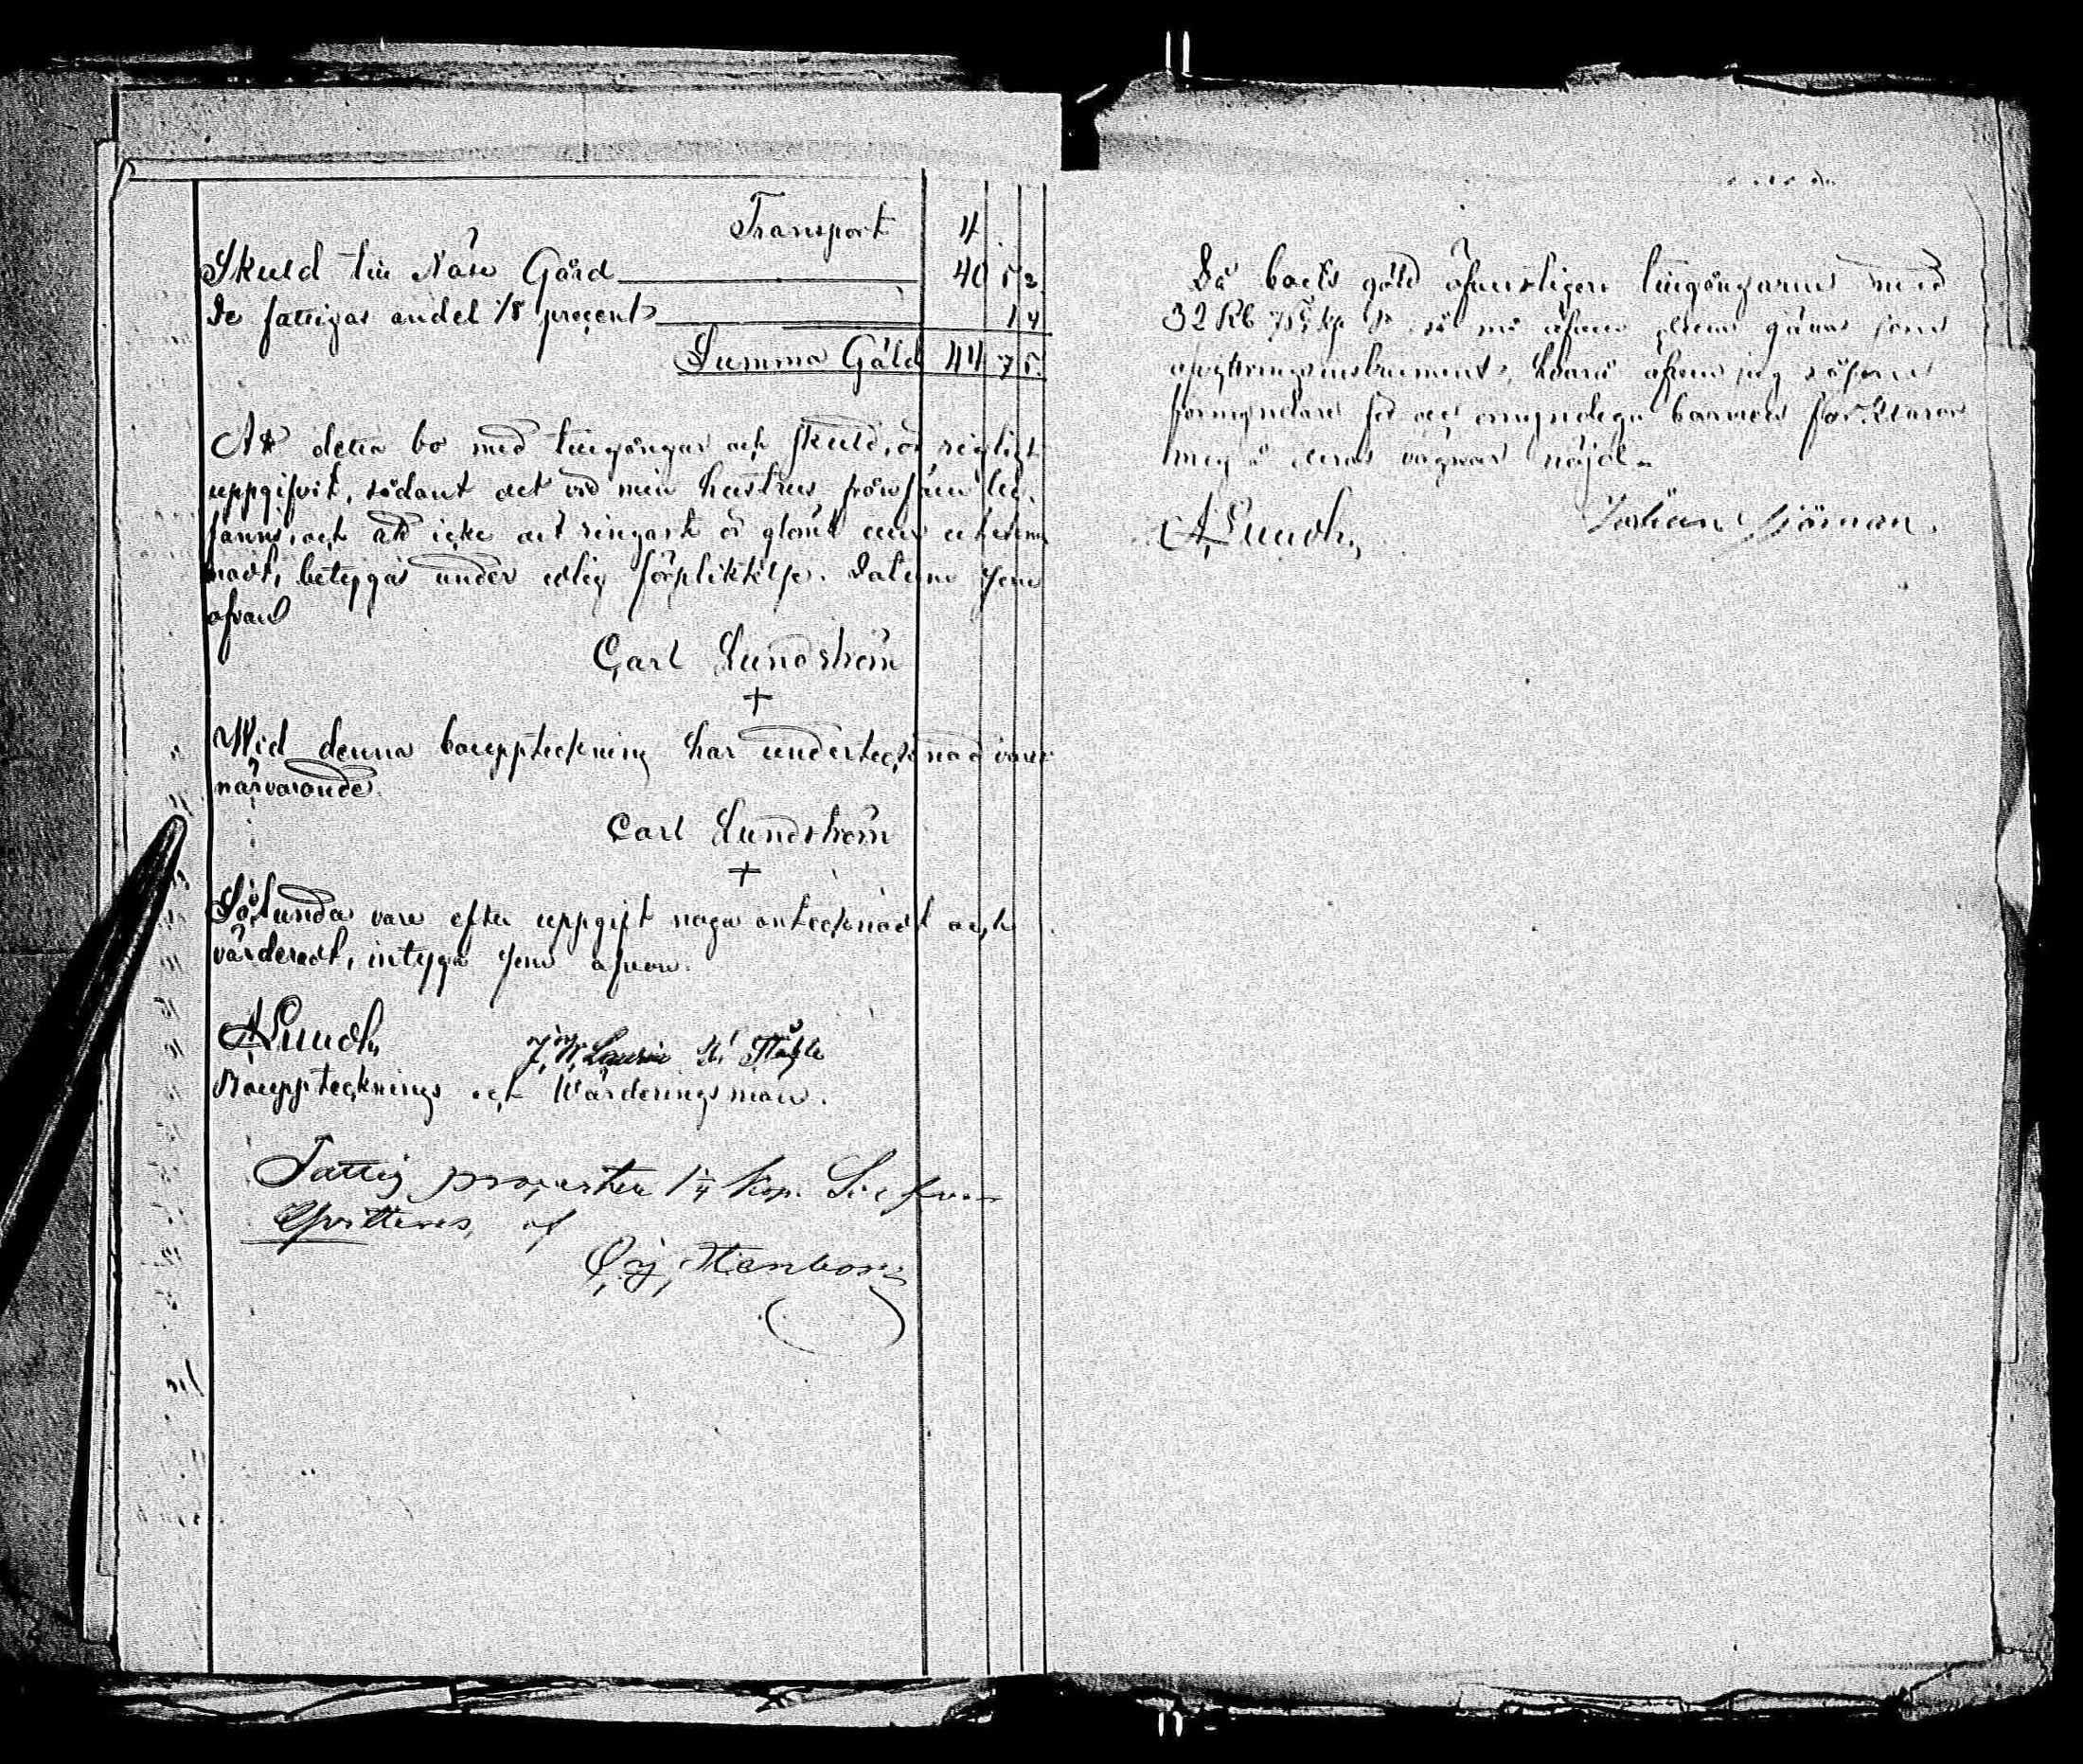 Transport 4
Skuld till Näse Gård 40 5 2
De fattigas andel 1/8 procent 1 4
Summa Gäld 44 7 5
At detta bo med tillgångar och skuld, är rigtigt
uppgifvit, sådant det vid min hustrus frånfälle be-
fanns, och att icke det ringaste är glömt eller utelem-
nadt, betygas under edlig förpliktelse. Datum som
ofvan
Carl Lundström
+
Wid denna bouppteckning har undertecknad varit
närvarande.
Carl Lundström
+
Sålunda vara efter uppgift noga antecknadt och
värderadt, intyga som ofvan.
A Lundh, J. W. Laurin
Boupptecknings och Wärderingsmän.
Fattig procenten 1 1/4 kop. Silfver
Qvitteras, af
Stenborg
Då boets gäld öfverstiger tillgångarne med
32 Rb 75 kop S. så må äfven denna gälla som
afvittringsinstrument, hvarå äfven jag såsom
förmyndare för det omyndiga barnet förklarar
mig å deras vägnar nöjd.
A Lundh, Johan Sjöman.